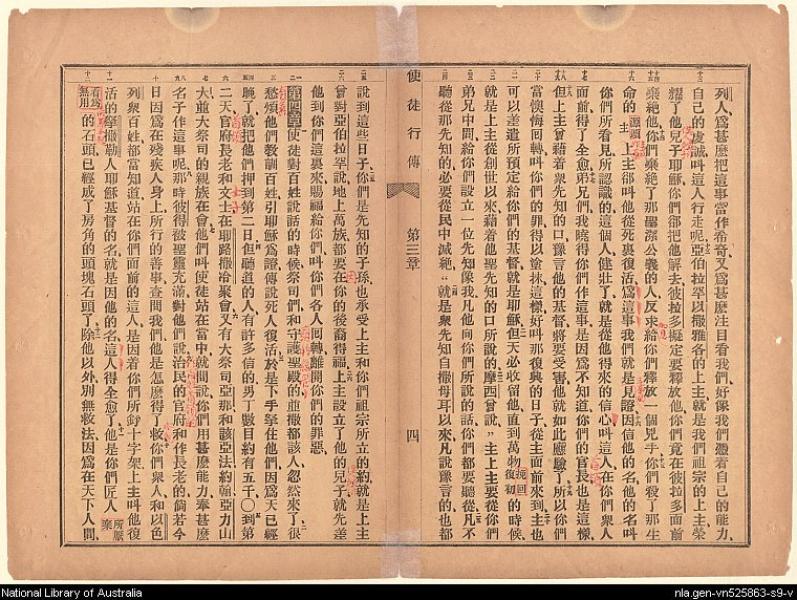 列人、爲甚麼把這事當作希奇、又爲甚麼注目看我們、好像我們憑着自己的能力、
自己的虔誠、叫這人行走呢、亞伯拉罕以撒雅各的上主、就是我們祖宗的上主、榮
耀了他兒子耶穌、你們卻把他解去、彼拉多擬定要釋放他、你們竟在彼拉多面前
棄絕他、你們棄絕了那聖潔公義的人、反求給你們釋放一個兇手、你們殺了那生
命的源頭主、上主卻叫他從死裏復活、爲這事我們就是見證、因信他的名、他的名叫
你們所看見所認識的這個人健壯了、就是從他得來的信心、叫這人在你們衆人
面前得了全愈、弟兄們、我曉得你們作這事、是因爲不知道、你們的官長也是這樣、
但上主曾藉着衆先知的口、豫言他的基督將要受害、他就如此應驗了、所以你們
當懊悔回轉、叫你們的罪、得以塗抹、這樣、好叫那復興的日子、從主面前來到、主也
可以差遣所預定給你們的基督、就是耶穌、但天必收留他、直到萬物復初挽回的時候、
就是上主從創世以來、藉着他聖先知的口所說的、摩西曾說、主上主要從你們
弟兄中間、給你們設立一位先知像我、凡他向你們所說的話、你們都要聽從、凡不
聽從那先知的、必要從民中滅絕、就是衆先知自撒母耳以來、凡說豫言的、也都
使徒行傳 第三章 四
說到這些日子、你們是先知的子孫、也承受上主和你們祖宗所立的約、就是上主
曾對亞伯拉罕說、地上萬族、都要在你的後裔得福、上主設立了他的兒子、就先差
他到你們這裏來、賜福給你們、叫你們各人回轉、離開你們的罪惡、
第四章 使徒對百姓說話的時候、祭司們和守護聖殿的並撒都該人、忽然來了、很
愁煩他們教訓百姓、引耶穌爲證、傳說死人復活、於是下手拏住他們、因爲天已經
晚了、就把他們押到第二日、但聽道的人、有許多信的、男丁數目約有五千、〇到第
二天、官府長老和文士、在耶路撒冷聚會、又有大祭司亞那、和該亞法、約翰、亞力山
大、並大祭司的親族、在會、他們叫使徒站在當中、就問說、你們用甚麼能力、奉甚麼
名子、作這事呢、那時彼得被聖靈充滿、對他們說、治民的官府、和作長老的、倘若今
日因爲在殘疾人身上所行的善事、查問我們、他是怎麼得了救、你們衆人、和以色
列衆百姓、都當知道、站在你們面前的這人、是因着你們所釘十字架、上主叫他復
活的拏撒勒人耶穌基督的名、就是因他的名、這人得全愈了、他是你們匠人所厭棄
看爲無用的石頭、已經成了房角的頭塊石頭了、除他以外、別無救法、因爲在天下人間、
National Library of Australia
nla.gen-vn525863-s9-v